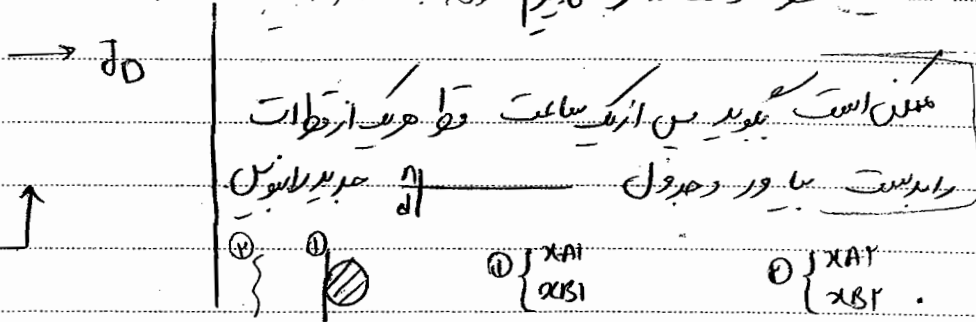 → J_D
ممکن است بگوید پس از یک ساعت قطر هر یک از قطرات
را بدست بیاور و جدول n d جدید را بنویس
② ① ① { xA1 xB1 ② { xA2 xB2 .